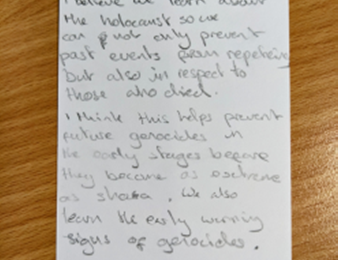 I believe we learn about
the holocaust so we
can not only prevent
past events from repeteing
but also in respect to
those who died.
I think this helps prevent
future genocides in
the early stages before
they become as extreme
as shoaa. We also
learn the early warning
signs of genocides.